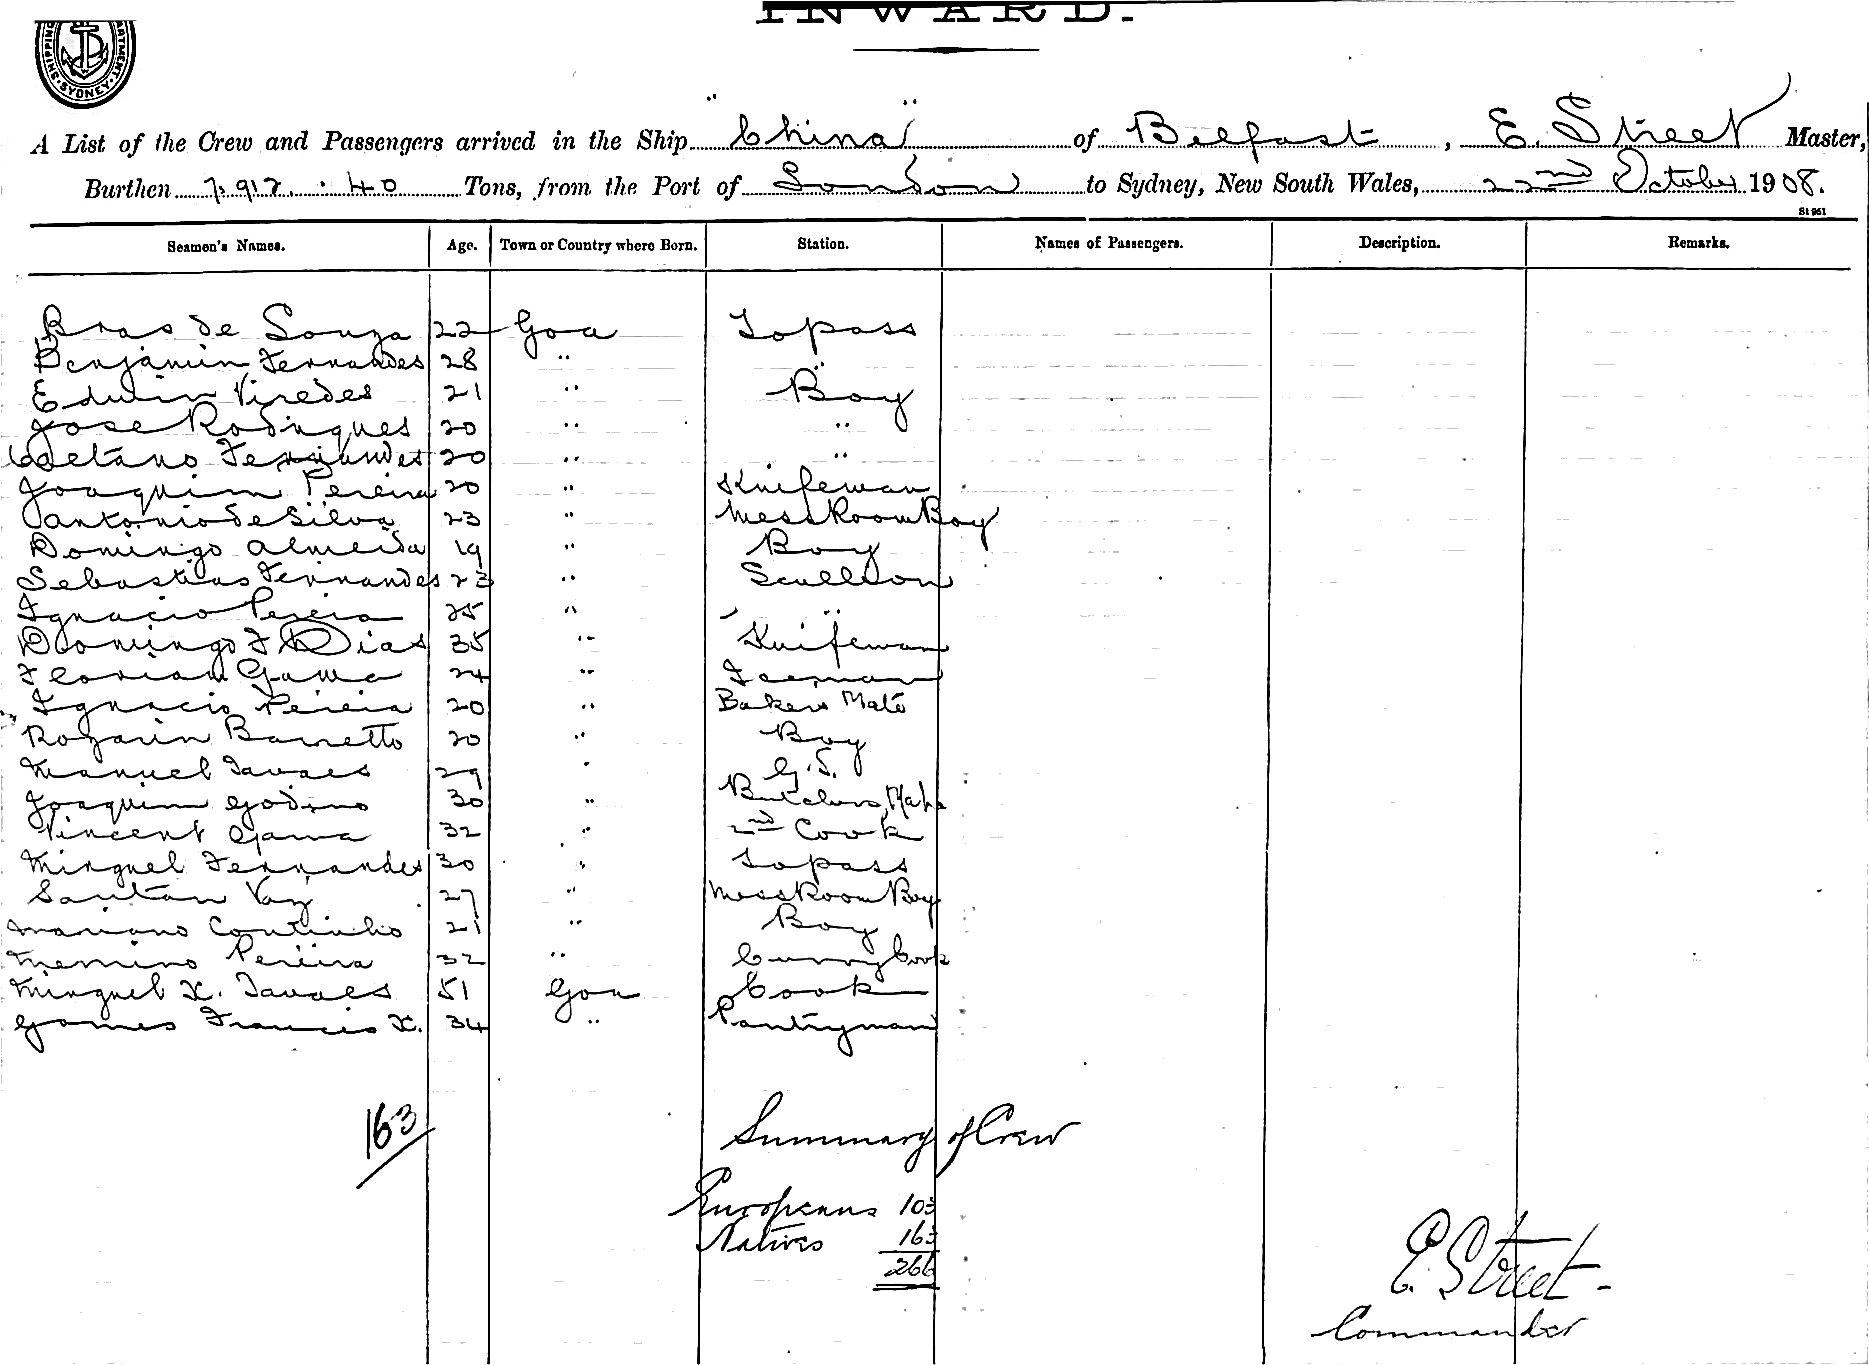 INWARD.
SHIPPING DEPARTMENT SYDNEY
A List of the Crew and Passengers arrived in the Ship "China" of Belfast, E. Street Master,
Burthen 7,912.40 Tons, from the Port of London to Sydney, New South Wales, 22nd October 1908.
S1961
Seamen's Names. Age. Town or Country where Born. Station. Names of Passengers. Description. Remarks.
Bras de Souza 22 Goa Topass
Benjamin Fernandes 28 " "
Edwin Viredes 21 " Boy
Jose Rodrigues 20 " "
Caetano Fernandes 20 " "
Joaquim Pereira 20 " Knifeman
Antonio de Silva 23 " Mess Room Boy
Domingo Almeida 19 " Boy
Sebastiao Fernandes 23 " Scullion
Ignacio Pereira 25 " "
Domingo F Dias 35 " Knifeman
Florian Gama 24 "
Ignacio Pereira 20 " Bakers Mate
Rozarin Barretto 20 " Boy
Manuel Tavares 29 " G.S.
Joaquim Godino 30 " Butchers Mate
Vincent Gama 32 " 2nd Cook
Minguel Fernandes 30 " Topass
Santan Vaz 27 " Mess Room Boy
Mariano Coutinho 21 " Boy
Menino Pereira 32 " Curry Cook
Minguel X. Tavares 51 Goa Cook
Gomes Francis X. 34 " Pantryman
163
Summary of Crew
Europeans 103
Natives 163
266
E. Street
Commander